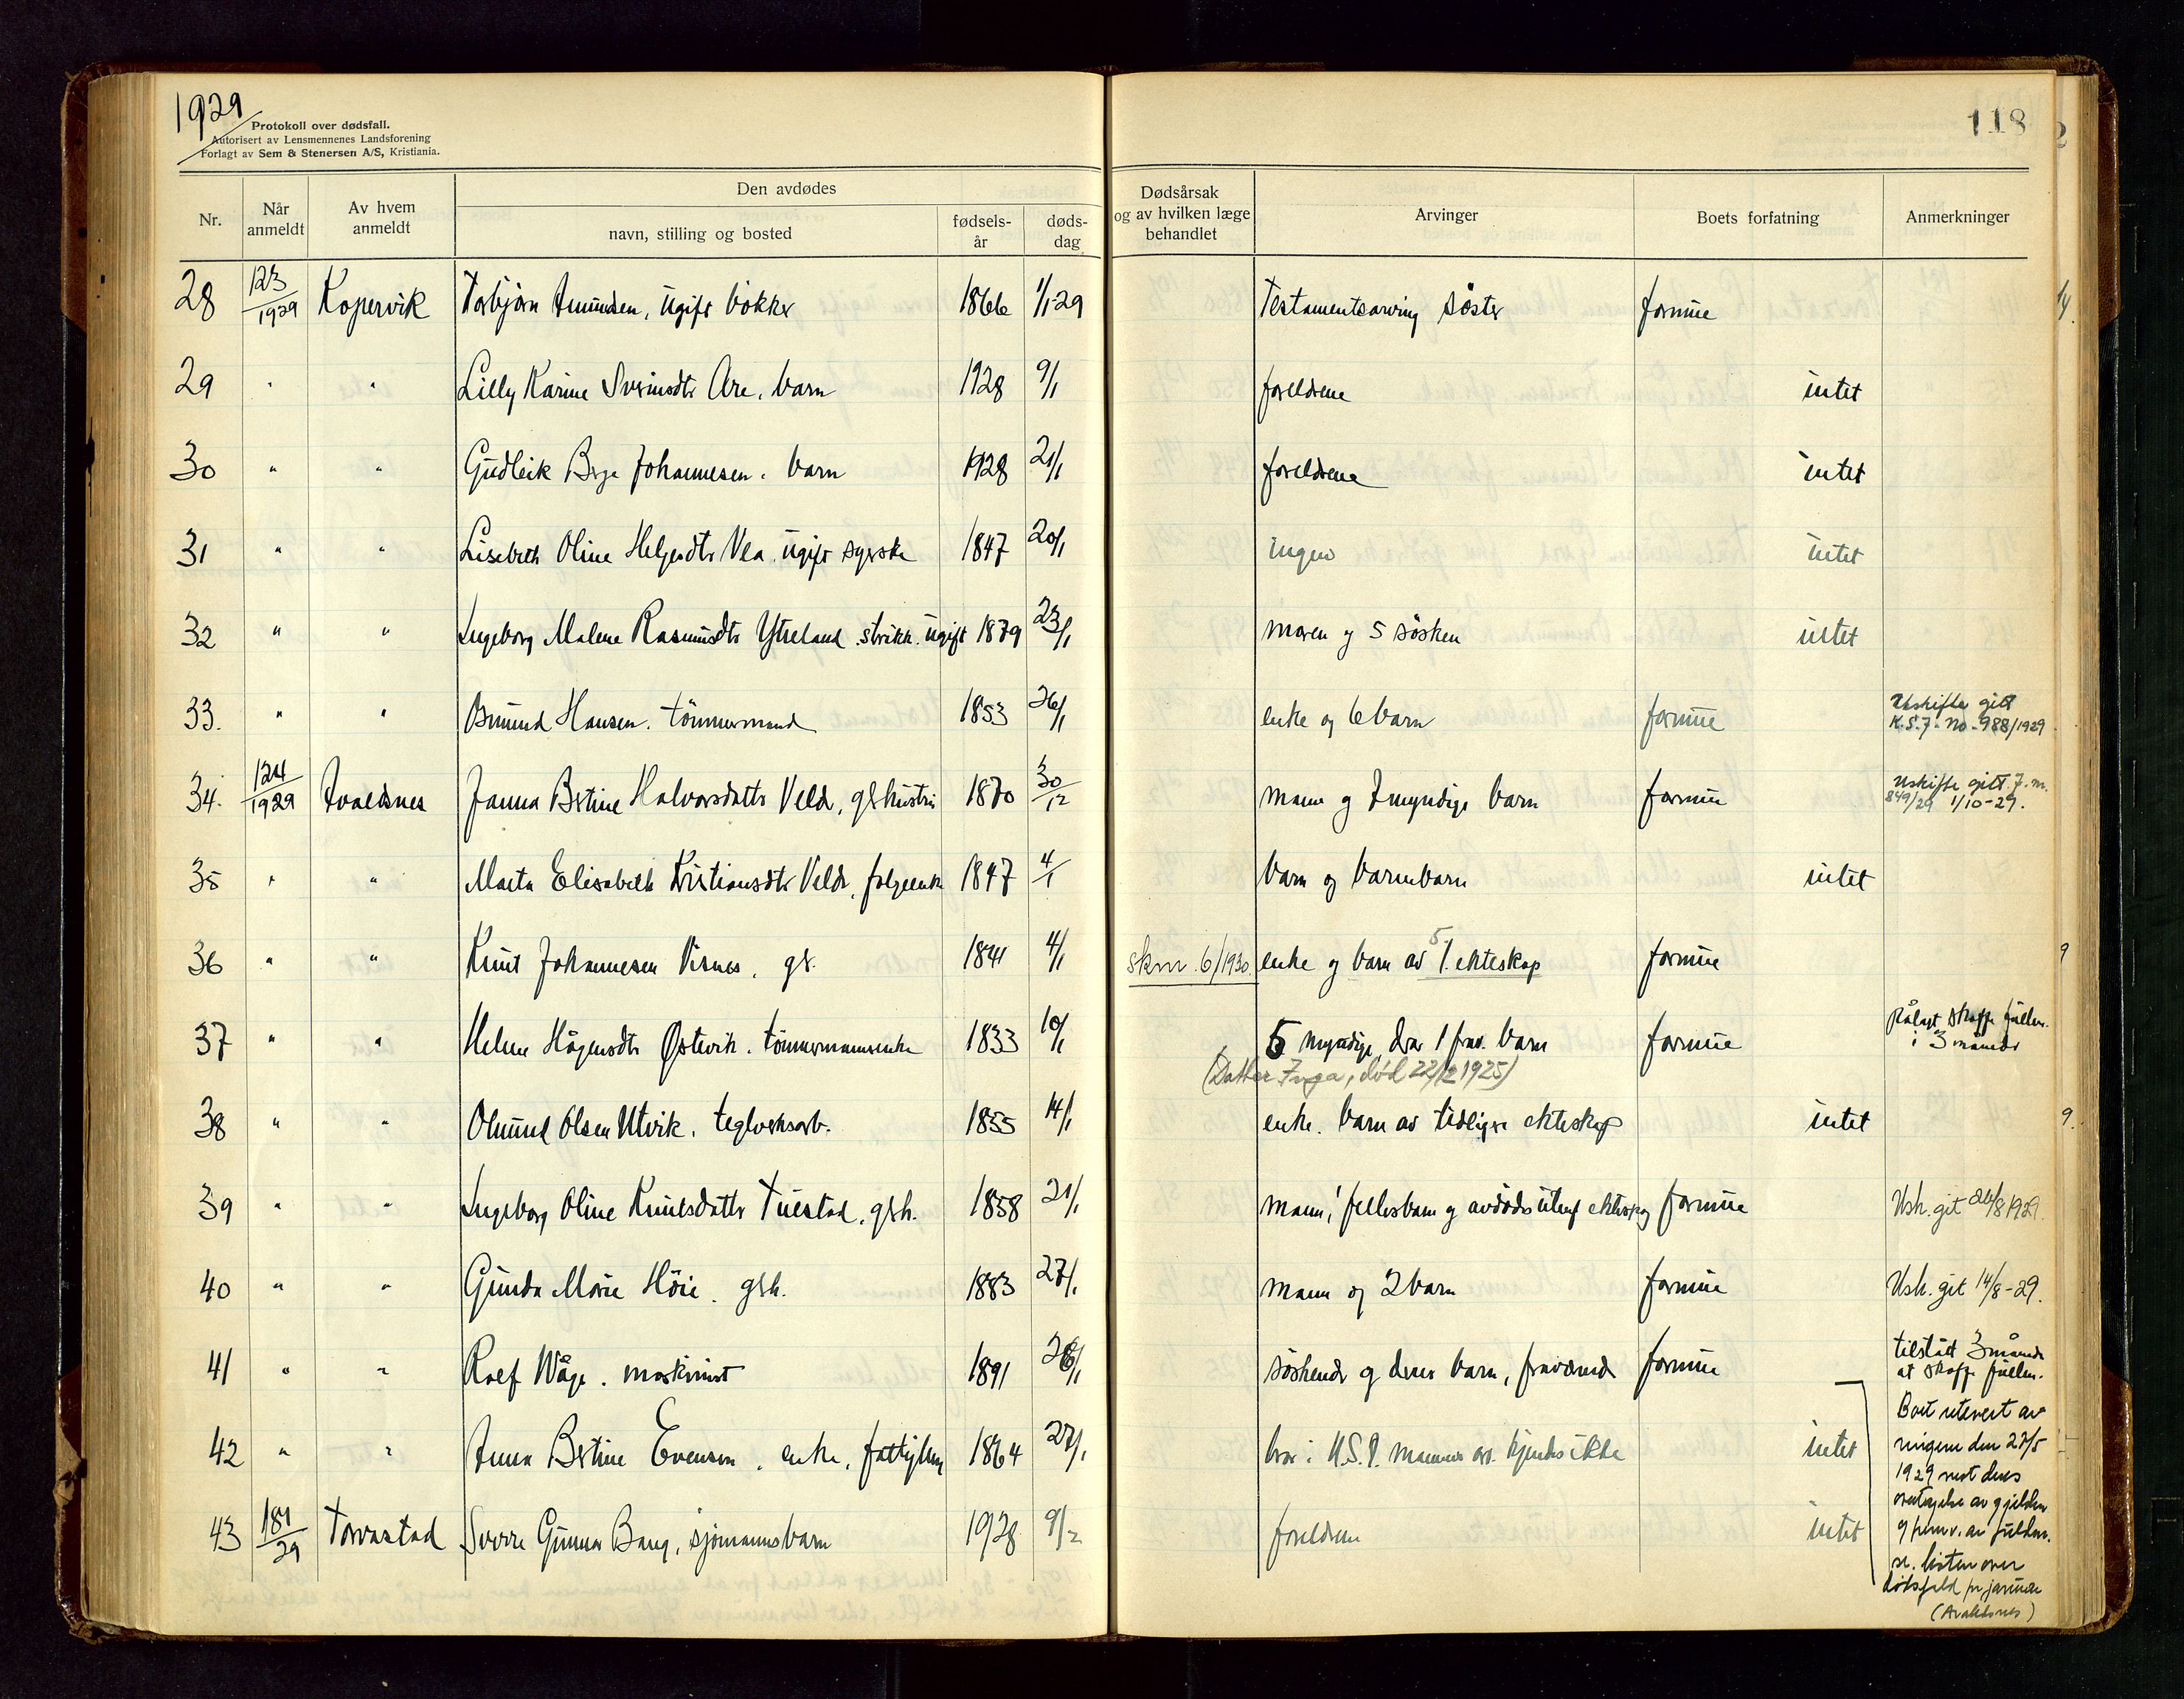 1929
Protokoll over dødsfall.
Autorisert av Lensmennenes Landsforening
Forlagt av Sem & Stenersen A/S, Kristiania.
118
Nr. Når anmeldt Av hvem anmeldt Den avdødes navn, stilling og bosted fødsels-år døds-dag Dødsårsak og av hvilken læge behandlet Arvinger Boets forfatning Anmerkninger
28 123/1929 Kopervik Torbjørn Amundsen, ugift bøkker 1866 1/1-29 Testamentsarving søster formue
29 " " Lilly Karine Sveinsdtr Are, barn 1928 9/1 foreldrene intet
30 " " Gudleik Johannesen. barn 1928 21/1 foreldrene intet
31 " " Lisebeth Oline Helgesdtr Vea. ugift syerske 1847 20/1 ingen intet
32 " " Ingeborg Malene Rasmusdtr Ytreland. strikk. ugift 1879 23/1 moren og 5 søsken intet
33. " " Hansen. tømmermand 1853 26/1 enke og 6 barn formue Uskifte gitt K.S.7-no-988/1929
34. 124/1929 Avaldsnes Janna Bertine Halvorsdatter Velde, gbhustru 1870 30/12 mann og 7 myndige barn formue Uskifte gitt. J.m. 849/29 1/10-29.
35 " " Marta Elisabeth Kristiansdtr Velde, folgeenke 1847 4/1 barn og barnebarn intet
36 " " Knut Johannesen Visnes. gb. 1841 4/1 skm. 6/1930 enke og 5 barn av 1. ekteskap formue
37 " " Helene Hågensdtr Østevik. tømmermannsenke 1833 10/1 5 myndige, derav 1 frav. barn formue Pålagt skaffe fullm. i 3 måneder
(Datter Inga, død 22/12 1925)
38 " " Olsen Utvik. teglverksarb. 1855 14/1 enke. barn av tidligere ekteskap intet
39 " " Ingeborg Oline Knutsdatter Tuestad. gbh. 1858 21/1 mann, fellesbarn og avdødes utenf ekteskap formue Ush. git 26/8 1929.
40 " " Gunda Marie Höie. gbh. 1883 27/1 mann og 2 barn formue Ush. git 14/8-29.
41 " " Rolf Våge. maskinist 1891 26/1 søskende og deres barn, fraværende formue tilstått 3 måneder at skaffe fullm.
42 " " Anna Bertine Evensen. enke, fattiglem 1864 27/1 bror i U.S.A. mannens arv. kjendes ikke intet Boet utlevert arvingene den 27/5 1929 mot deres overtagelse av gjelden
43 181/29 Torvastad Sverre Gunnar Bang, sjømannsbarn 1928 9/2 foreldrene intet
se. listen over
dødsfald pr januar
(Avaldsnes)